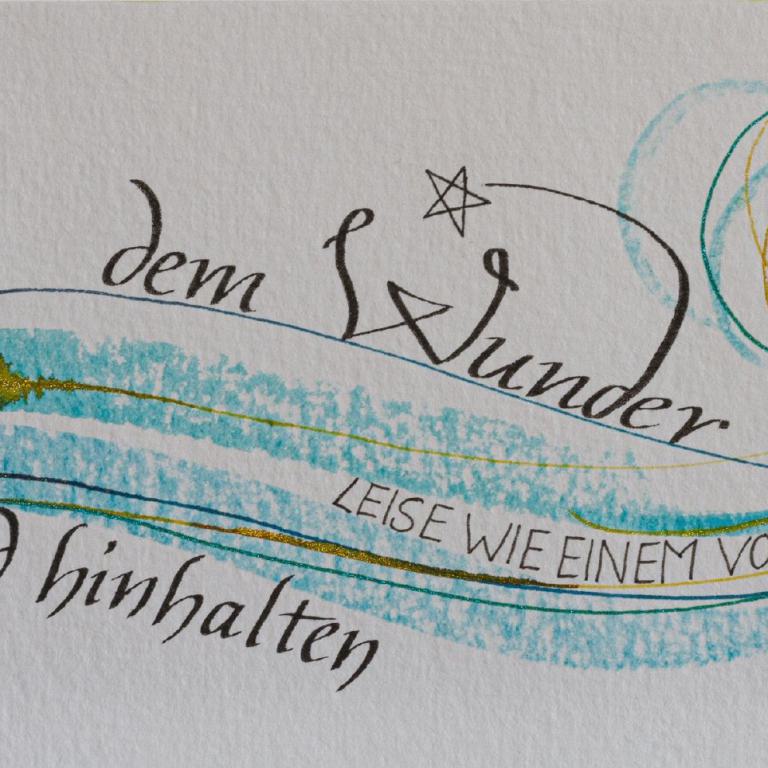 dem Wunder
LEISE WIE EINEM VO
hinhalten